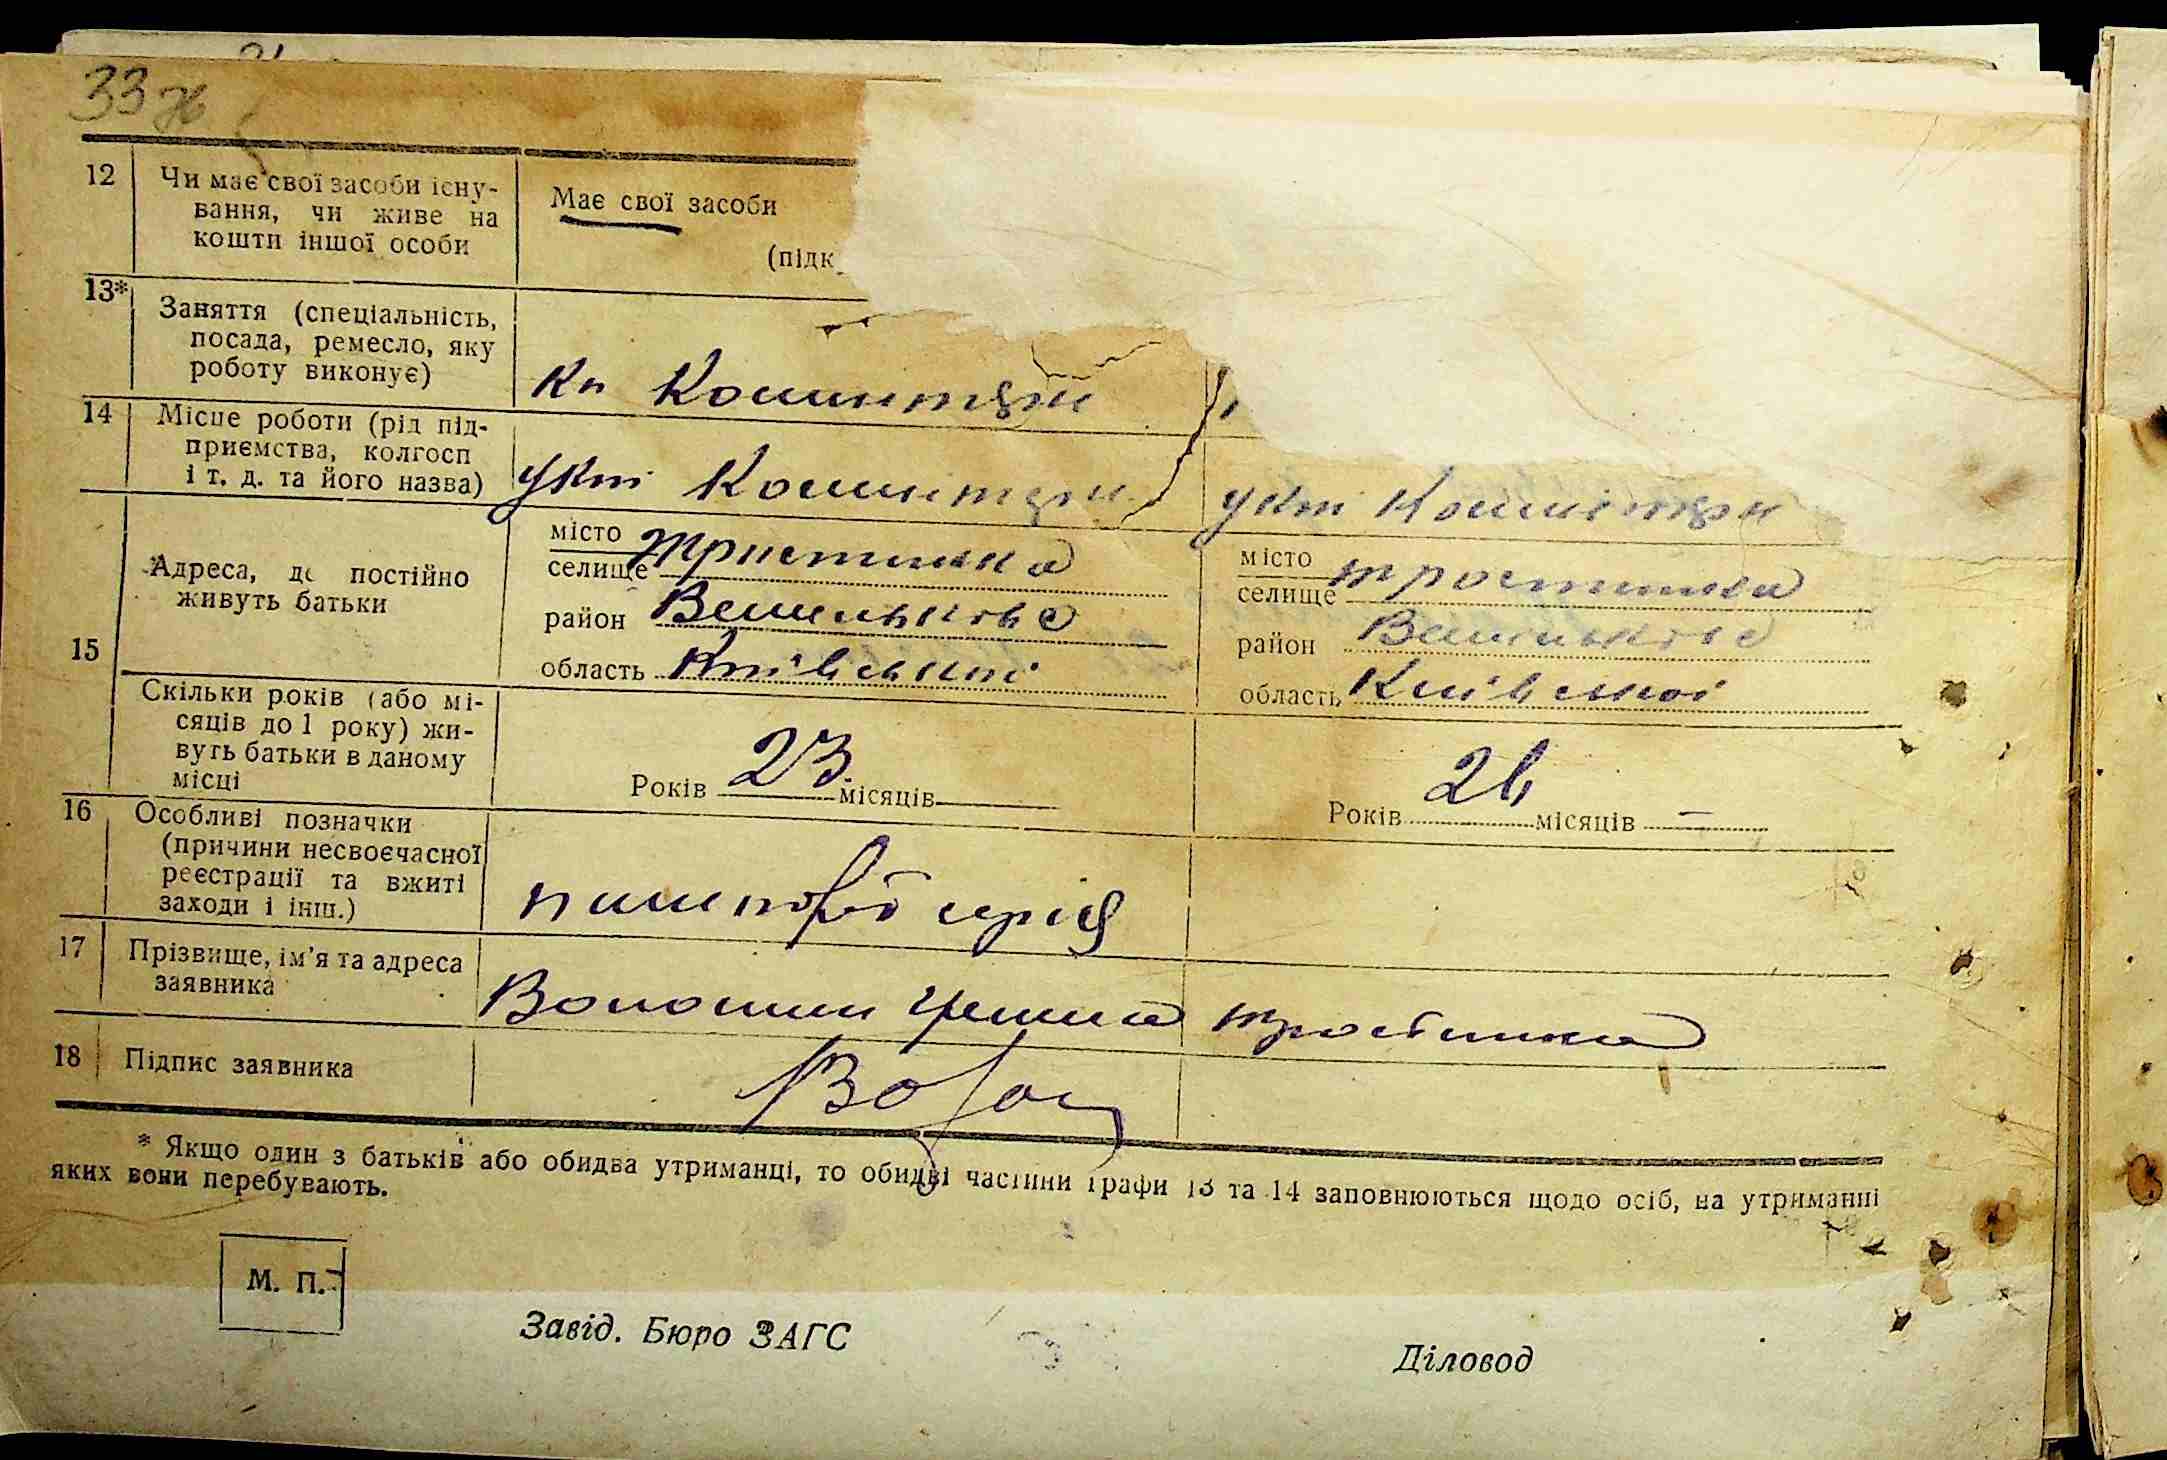 33
12 Чи має свої засоби існу-
вання, чи живе на
кошти іншої особи
Має свої засоби
(підк
13* Заняття (спеціальність,
посада, ремесло, яку
роботу виконує)
Кп Комінтерн
14 Місце роботи (рід під-
приємства, колгосп
і т. д. та його назва)
Комінтерн
Комінтерн
15 Адреса, де постійно
живуть батьки
місто
селище Тростинка
район
область Київській
місто
селище Тростинка
район
область Київської
Скільки років (або мі-
сяців до 1 року) жи-
вуть батьки в даному
місці
Років 23 місяців
Років місяців —
16 Особливі позначки
(причини несвоєчасної
реєстрації та вжиті
заходи і інш.)
серія
17 Прізвище, ім'я та адреса
заявника
Волошин Тростинка
18 Підпис заявника
* Якщо один з батьків або обидва утриманці, то обидві частини графи 13 та 14 заповнюються щодо осіб, на утриманні
яких вони перебувають.
М. П.
Завід. Бюро ЗАГС
Діловод